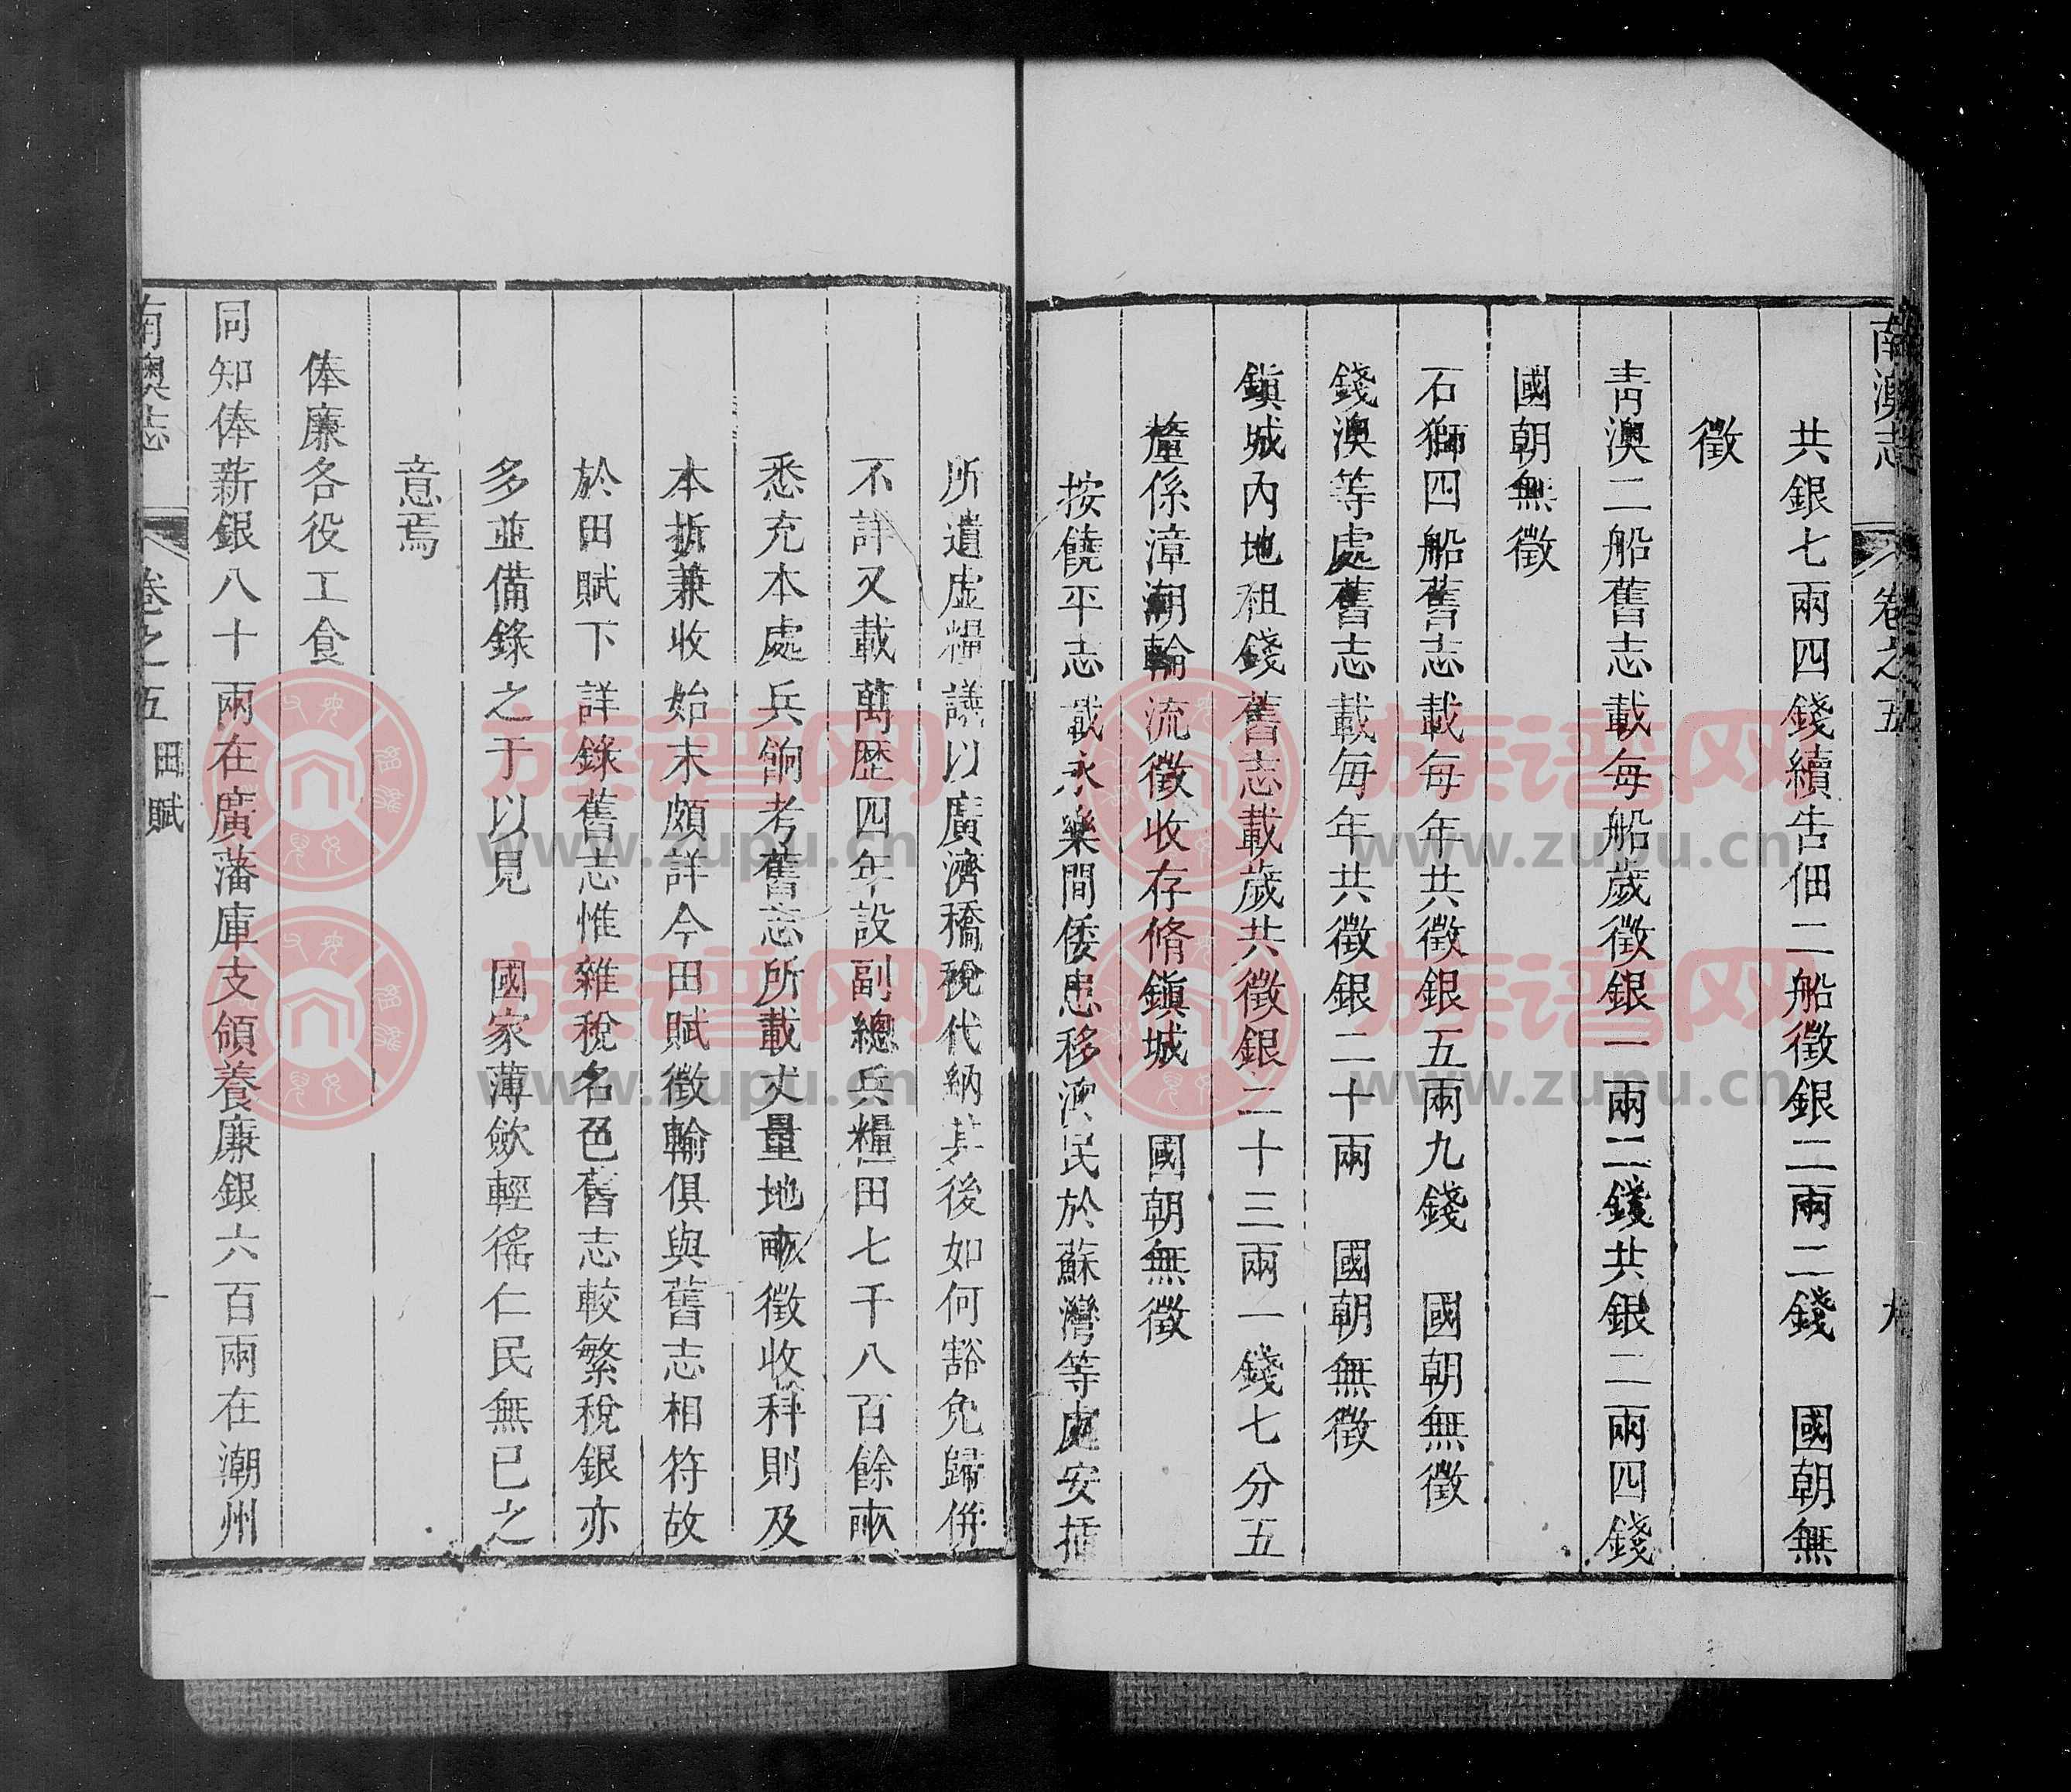 南澳志 卷之五 九
共銀七兩四錢續告佃二船徵銀二兩二錢 國朝無
徵
青澳二船舊志載每船歲徵銀一兩二錢共銀二兩四錢
國朝無徵
石獅四船舊志載每年共徵銀五兩九錢 國朝無徵
錢澳等處舊志載每年共徵銀二十兩 國朝無徵
鎮城內地租錢舊志載歲共徵銀二十三兩一錢七分五
釐係漳潮輪流徵收存脩鎮城 國朝無徵
按饒平志載永樂間倭患移澳民於蘇灣等處安插
所遺虛糧議以廣濟橋稅代納其後如何豁免歸併
不詳又載萬歷四年設副總兵糧田七千八百餘畝
悉充本處兵餉考舊志所載丈量地畝徵收科則及
本折兼收始末頗詳今田賦徵輸俱與舊志相符故
於田賦下詳錄舊志惟雜稅名色舊志較繁稅銀亦
多並備錄之于以見 國家薄歛輕徭仁民無已之
意焉
俸廉各役工食
同知俸薪銀八十兩在廣藩庫支領養廉銀六百兩在潮州
南澳志 卷之五 田賦 十
族谱网
www.zupu.cn
族谱网
www.zupu.cn
族谱网
www.zupu.cn
族谱网
www.zupu.cn